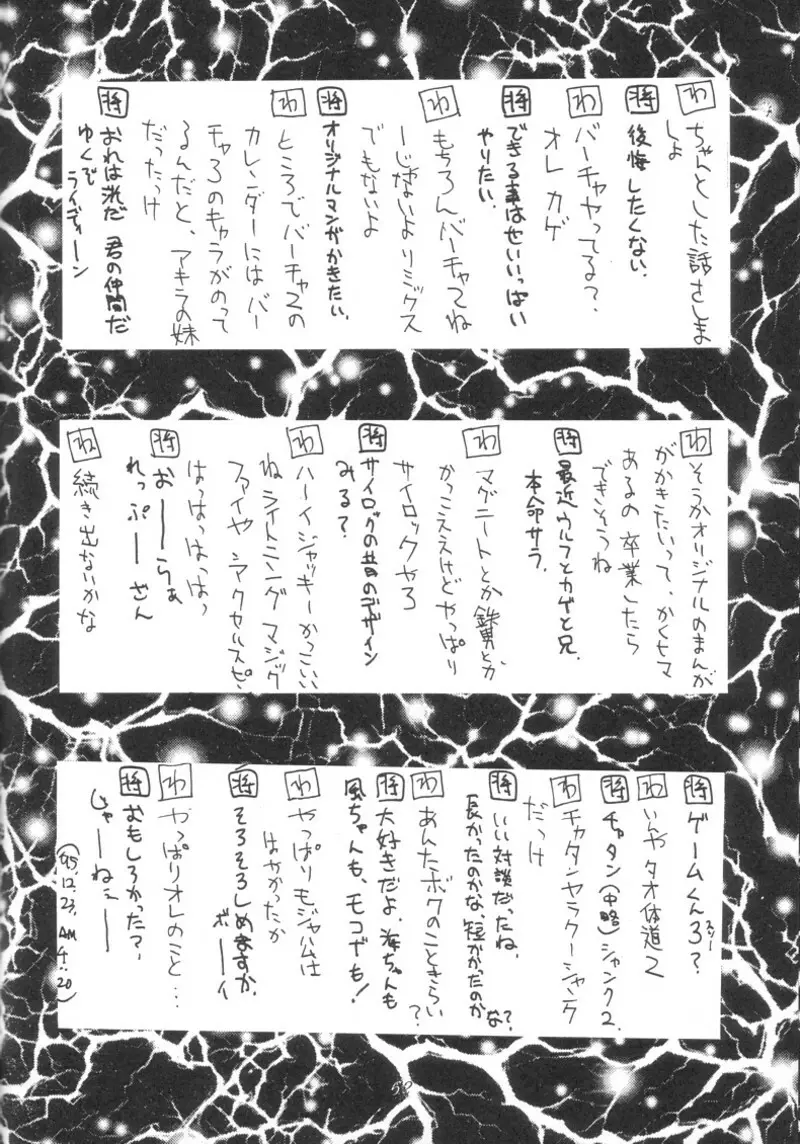 わ ちゃんとした話さしま
しょ
将 後悔したくない.
わ バーチャやってる?
オレ カゲ
将 できる事はせいいっぱい
やりたい.
わ もちろんバーチャ2ね
ーじゃないよリミックス
でもないよ
将 オリジナルマンガかきたい.
わ ところでバーチャ2の
カレンダーにはバー
チャ3のキャラがのって
るんだと、アキラの妹
だったっけ
将 おれは洸だ 君の仲間だ
ゆくで
ライディーン
わ そうかオリジナルのまんが
がかきたいって、かくヒマ
あるの 卒業したら
できそうね
将 最近ウルフとカゲと兄.
本命サラ.
わ マグニートとか鉄男とか
かっこええけどやっぱり
サイロックやろ
将 サイロックの昔のデザイン
みる?
わ ハーイジャッキーかっこいい
ねライトニング マジック
ファイヤ シアクセルスピ、
はっはっはっはっ
将 おーーらぁ
れっぷーざん
わ 続き出ないかな
将 ゲームくん3?
スリー
わ いんやタオ体道2
将 チャタン(中略)シャンク2.
わ チャタンヤラクーシャンク
だっけ
将 いい対談だったね.
長かったのかな、短かかったのか
な?
わ あんたボクのこときらい
?
将 大好きだよ.海ちゃんも
風ちゃんも、モコナも!
わ やっぱりモジャハムは
はやかったか
将 そろそろしめますか.
ボーイ
わ やっぱりオレのこと・・・
将 おもしろかった?
じゃーねぇーー
('95.12.23. AM 4:20)